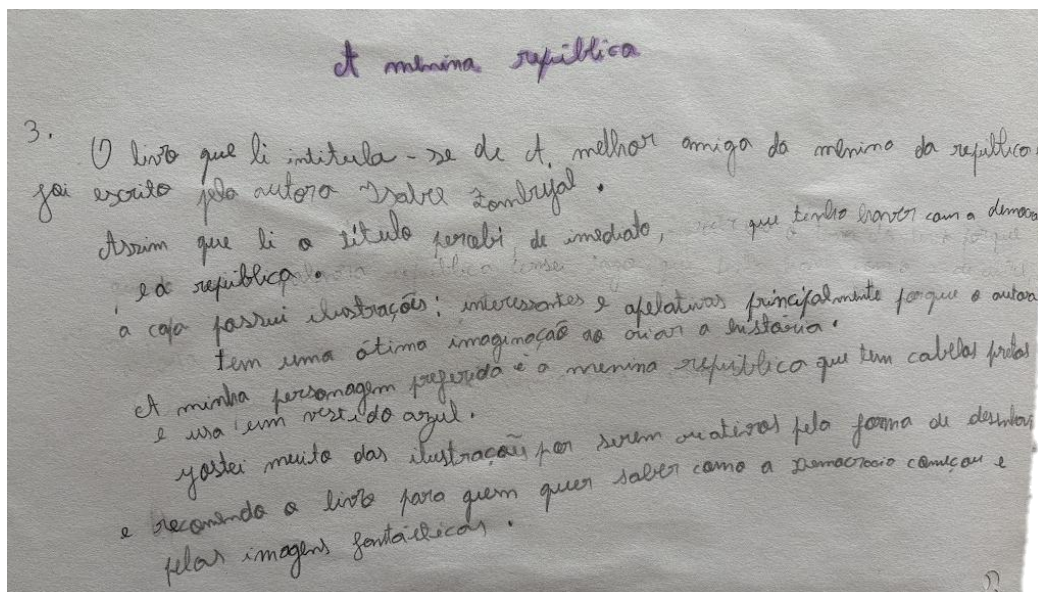 A menina república
3.
O livro que li intitula-se de A melhor amiga da menina da república
foi escrito pela autora Isabel Zambujal.
Assim que li o título percebi, de imediato, que tenho haver com a democra
e a república.
a capa possui ilustrações: interessantes e apelativas principalmente porque a autora
tem uma ótima imaginação ao criar a história.
A minha personagem preferida é a menina república que tem cabelos pretos
e usa um vestido azul.
gostei muito das ilustração por serem criativas pela forma de desenhar
e recomendo o livro para quem quer saber como a Democracia começou e
pelas imagens fantásticas.